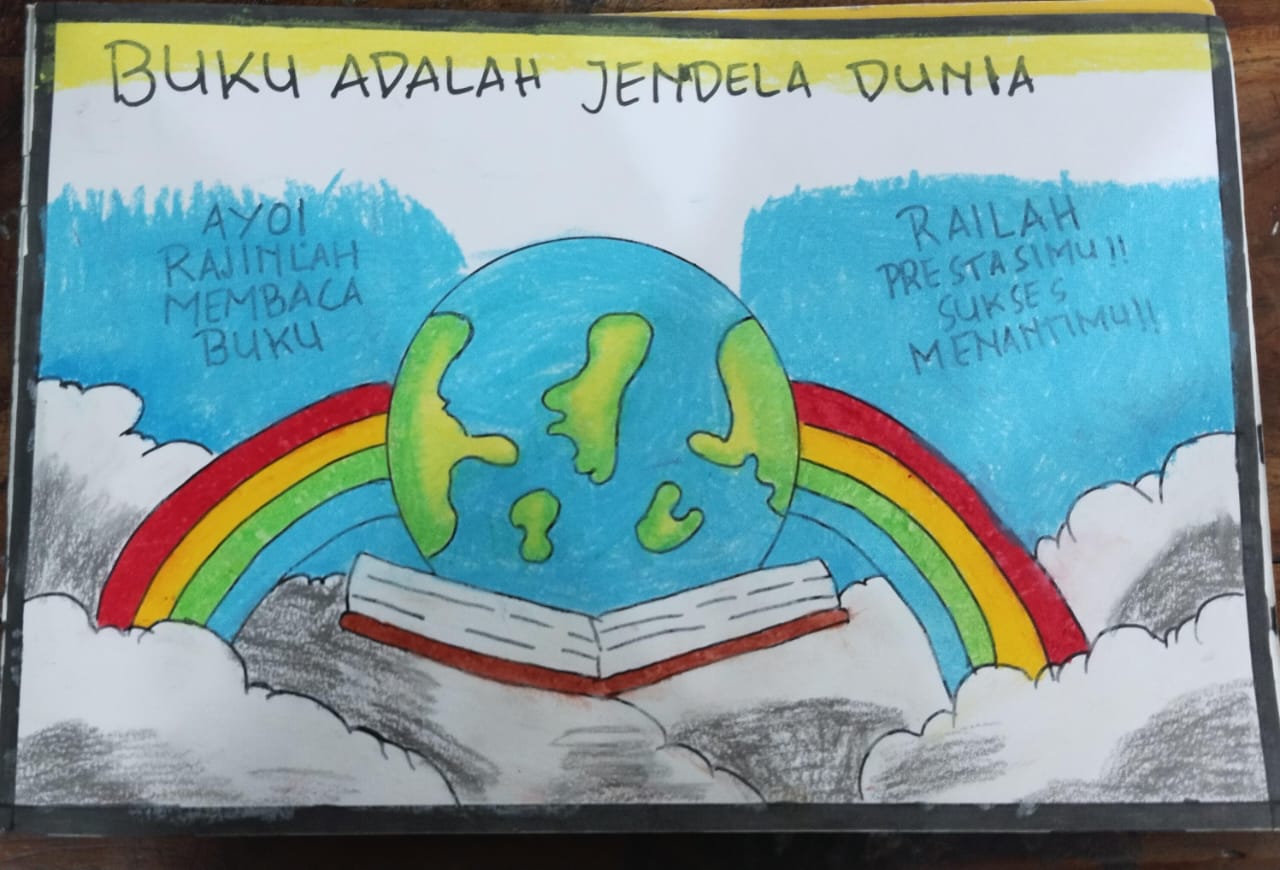 BUKU ADALAH JENDELA DUNIA
AYO!
RAJINLAH
MEMBACA
BUKU
RAILAH
PRESTASIMU!!
SUKSES
MENANTIMU!!